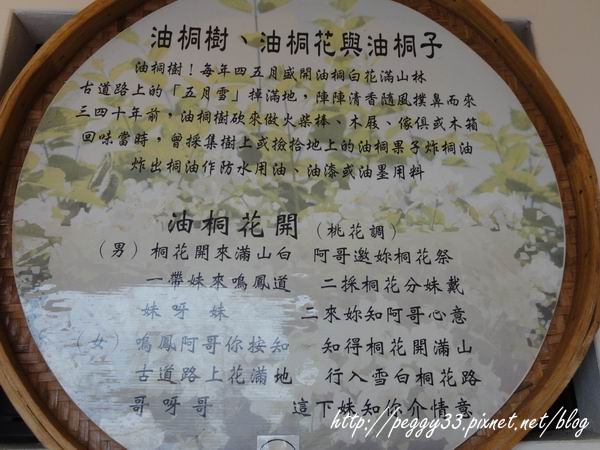 油桐樹、油桐花與油桐子
油桐樹！每年四五月盛開油桐白花滿山林
古道路上的「五月雪」掉滿地，陣陣清香隨風撲鼻而來
三四十年前，油桐樹砍來做火柴棒、木屐、傢俱或木箱
回味當時，曾採集樹上或撿拾地上的油桐果子炸桐油
炸出桐油作防水用油、油漆或油墨用料
油桐花開（桃花調）
（男）桐花開來滿山白 阿哥邀妳桐花祭
一帶妹來鳴鳳道 二採桐花分妹戴
妹呀妹 三來妳知阿哥心意
（女）鳴鳳阿哥你按知 知得桐花開滿山
古道路上花滿地 行入雪白桐花路
哥呀哥 這下妹知你介情意
http://peggy33.pixnet.net/blog